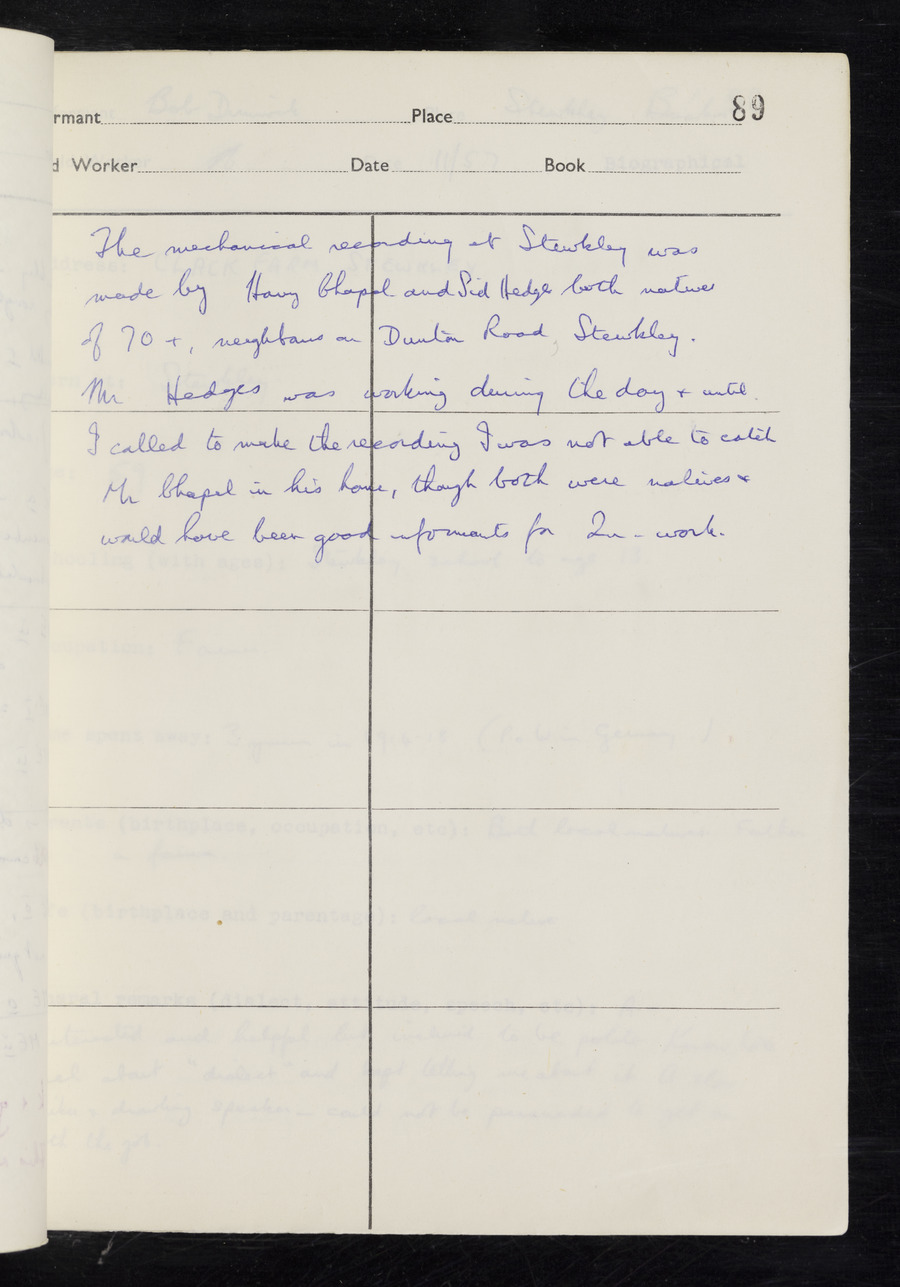 rmant Place 89
d Worker Date Book
The mechanical recording at Stewkley was
made by Harry Chapel and Sid Hedges both natives
of 70 +, neighbours on Dunton Road, Stewkley.
Mr Hedges was working during the day + until
I called to make the recording I was not able to catch
Mr Chapel in his home, though both were natives +
would have been good informants for Qu - work.